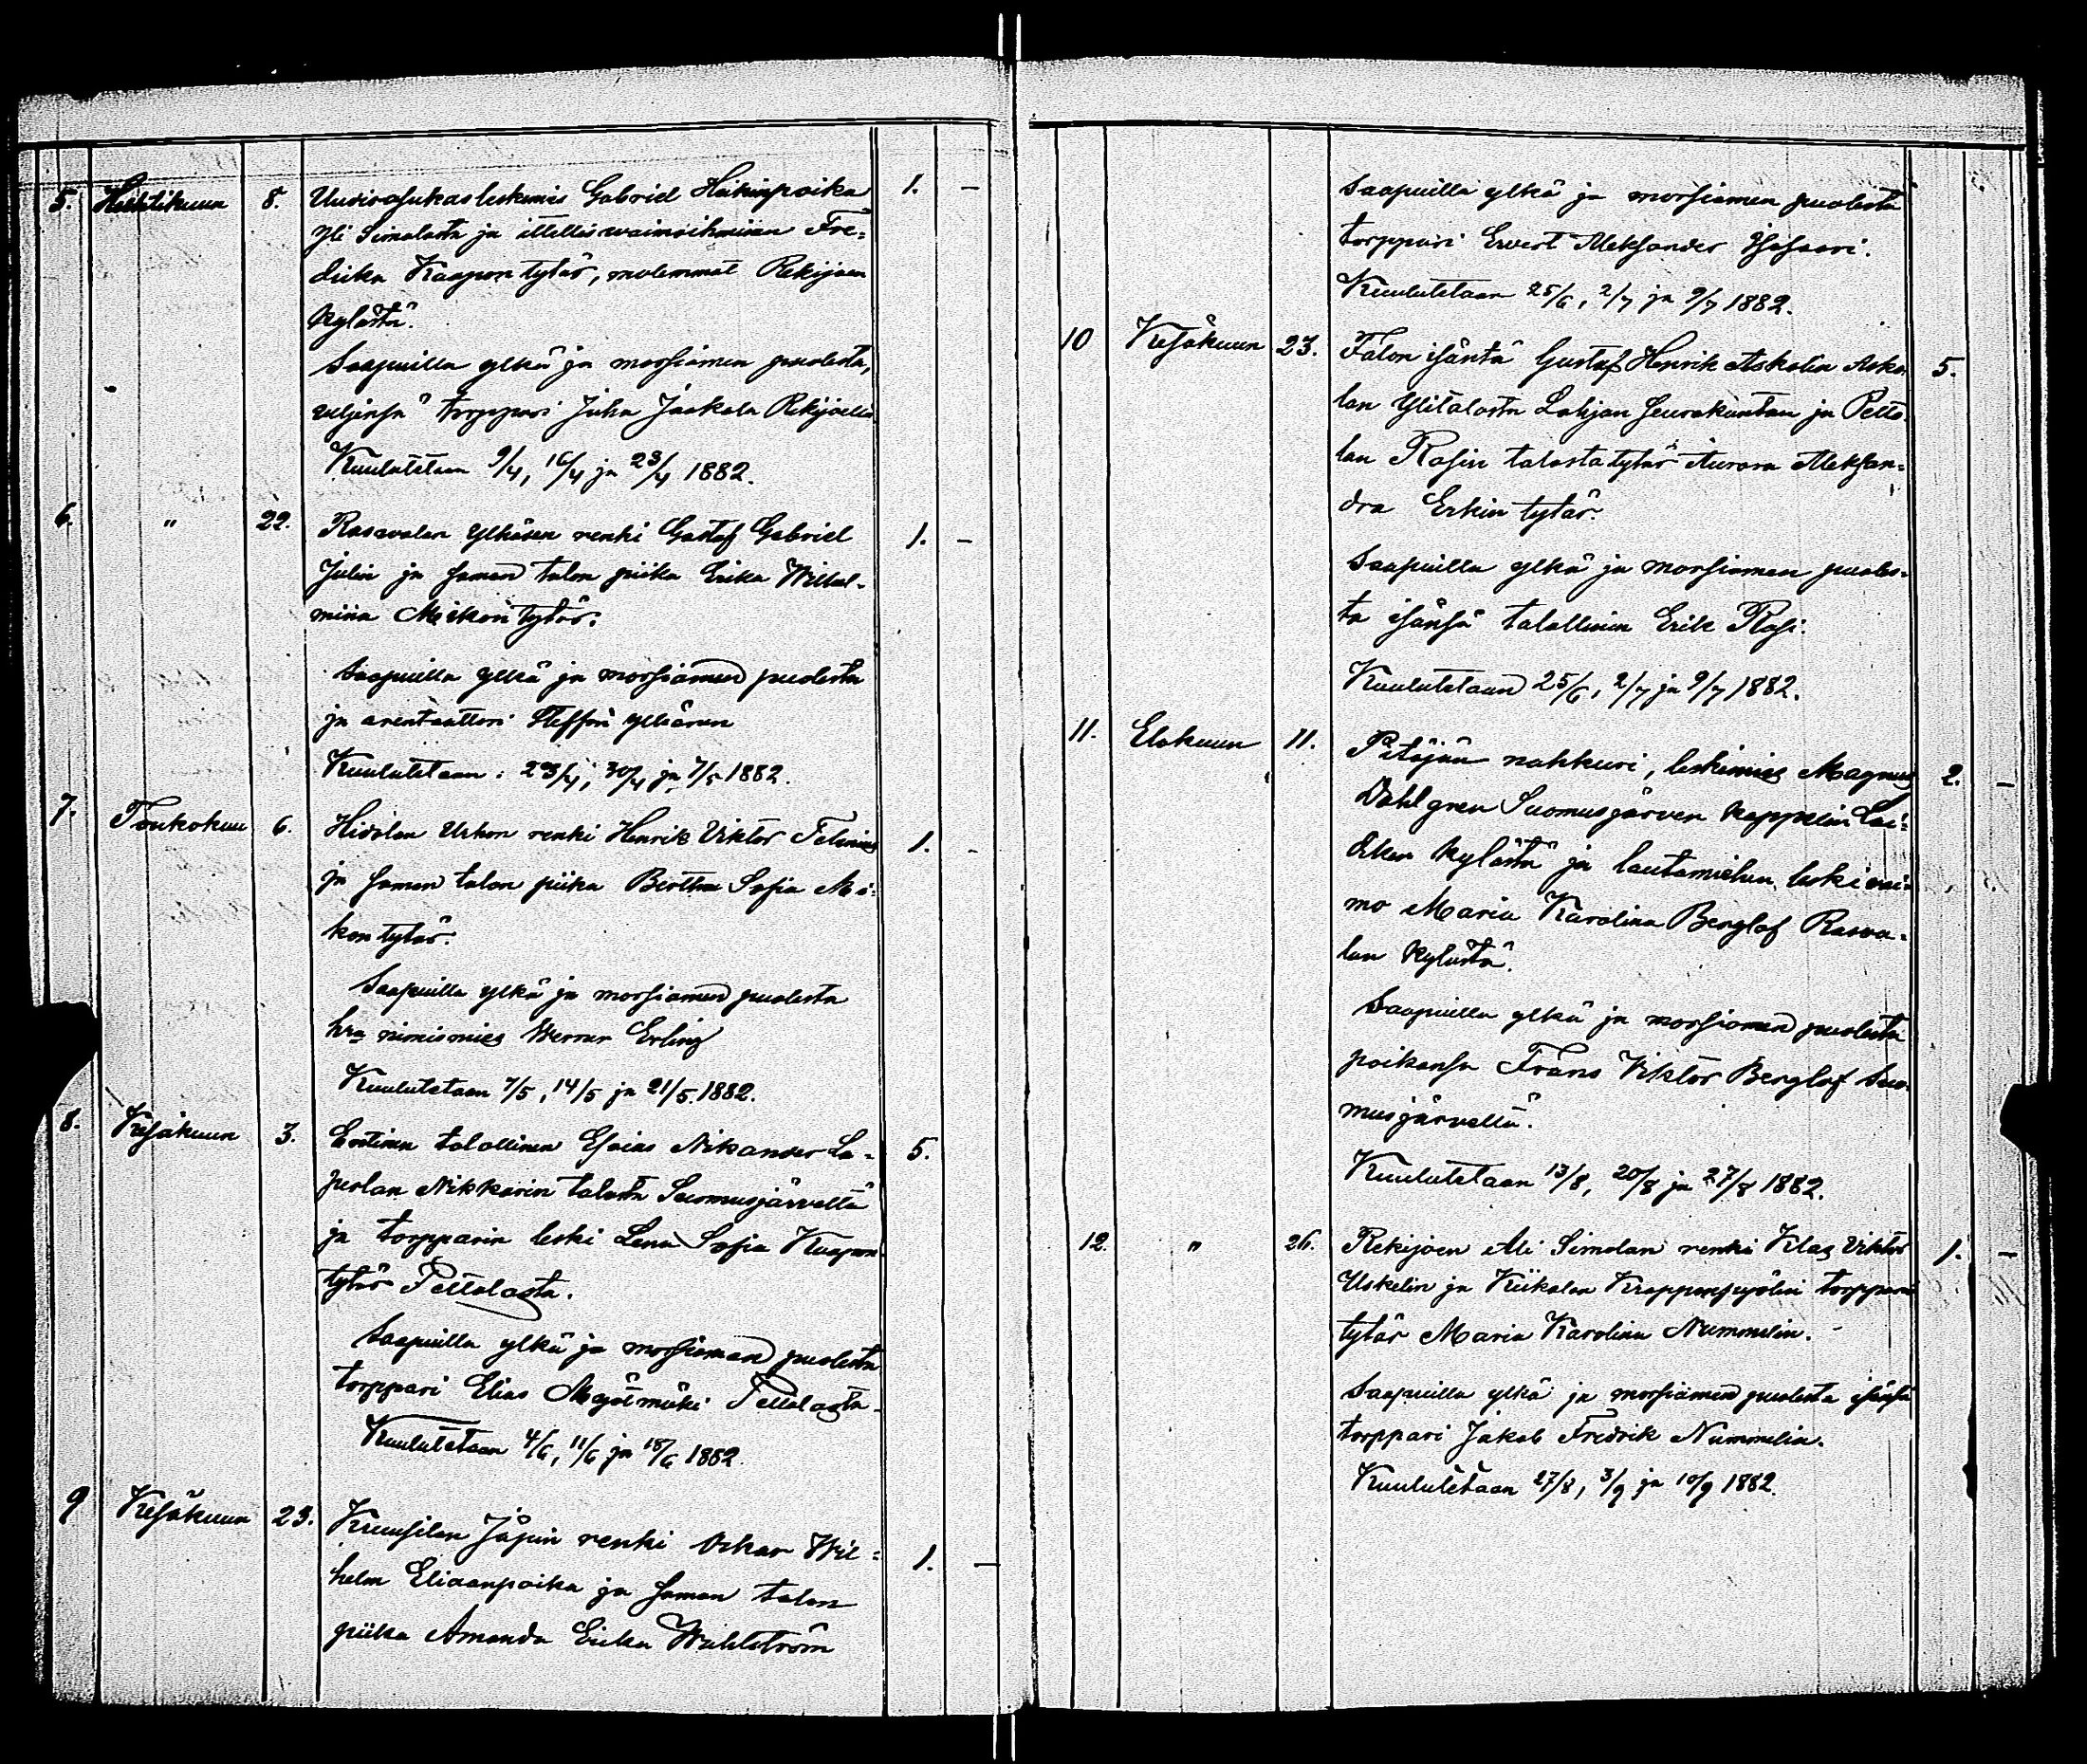 5. Huhtikuun 8. Uudisasukas leskimies Gabriel Heikinpoika 1. –
Yli Simolasta ja itellisvaimoihminen Fre-
drika Kaapon tytär, molemmat Rekijoen
kylästä.
Saapuilla ylkä ja morsiamen puolesta,
veljensä torppari Juha Jaakola Rekijoelta
Kuulutetaan 9/4, 16/4 ja 23/4 1882.
6. " 22. Rasvalan Ylhäsen renki Gustaf Gabriel 1. –
Julin ja saman talon piika Erika Wilhel-
mina Mikon tytär.
Saapuilla ylkä ja morsiamen puolesta
ja arentaattori Steffin
Kuulutetaan: 23/4, 30/4 ja 7/5 1882.
7. Toukokuu 6. Hidolan Uskon renki Henrik Viktor Felenius 1. -
ja saman talon piika Bertha Sofia Mi-
kon tytär.
Saapuilla ylkä ja morsiamen puolesta
hra nimismies Werner Erling
Kuulutetaan 7/5, 14/5 ja 21/5 1882.
8. Kesäkuun 3. Entinen talollinen Esaias Nikander La- 5.
perlan Nikkarin talosta Suomusjärveltä
ja torpparin leski Lena Sofia Kaapon
tytär Pettolasta.
Saapuilla ylkä ja morsiamen puolesta
torppari Elias Mäki Pettolasta.
Kuulutetaan 4/6, 11/6 ja 18/6 1882.
9 Kesäkuun 23. Kruusilan Jäpin renki Oskar Wil- 1. –
helm Eliaanpoika ja saman talon
piika Amanda Erika Wahlström
saapuilla ylkä ja morsiamen puolesta
torppari Evert Aleksander Isosaari.
Kuulutetaan 25/6, 2/7 ja 9/7 1882.
10 Kesäkuun 23. Talon isäntä Gustaf Henrik Askolin Asko- 5.
lan Ylitalosta Lohjan seurakuntaa ja Petto-
lan Rosin talosta tytär Aurora Aleksan-
dra Erkin tytär.
Saapuilla ylkä ja morsiamen puoles-
ta isänsä talollinen Erik Rosi.
Kuulutetaan 25/6, 2/7 ja 9/7 1882.
11. Elokuun 11. Pitäjän nahkuri, leskimies Magnus 2. –
Dahlgren Suomusjärven kappelin Lai-
diken kylästä ja lautamiehen leskivai-
mo Maria Karolina Berglof Rasva-
lan kylästä.
Saapuilla ylkä ja morsiamen puolesta
poikansa Frans Viktor Berglof Suo-
musjärveltä.
Kuulutetaan 13/8, 20/8 ja 27/8 1882.
12. " 26. Rekijoen Ali Simolan renki Klas Viktor 1. –
Uskelin ja Kiikalan torpparin
tytär Maria Karolina Nummelin. -
Saapuilla ylkä ja morsiamen puolesta isänsä
torppari Jakob Fredrik Nummelin.
Kuulutetaan 27/8, 3/9 ja 10/9 1882.